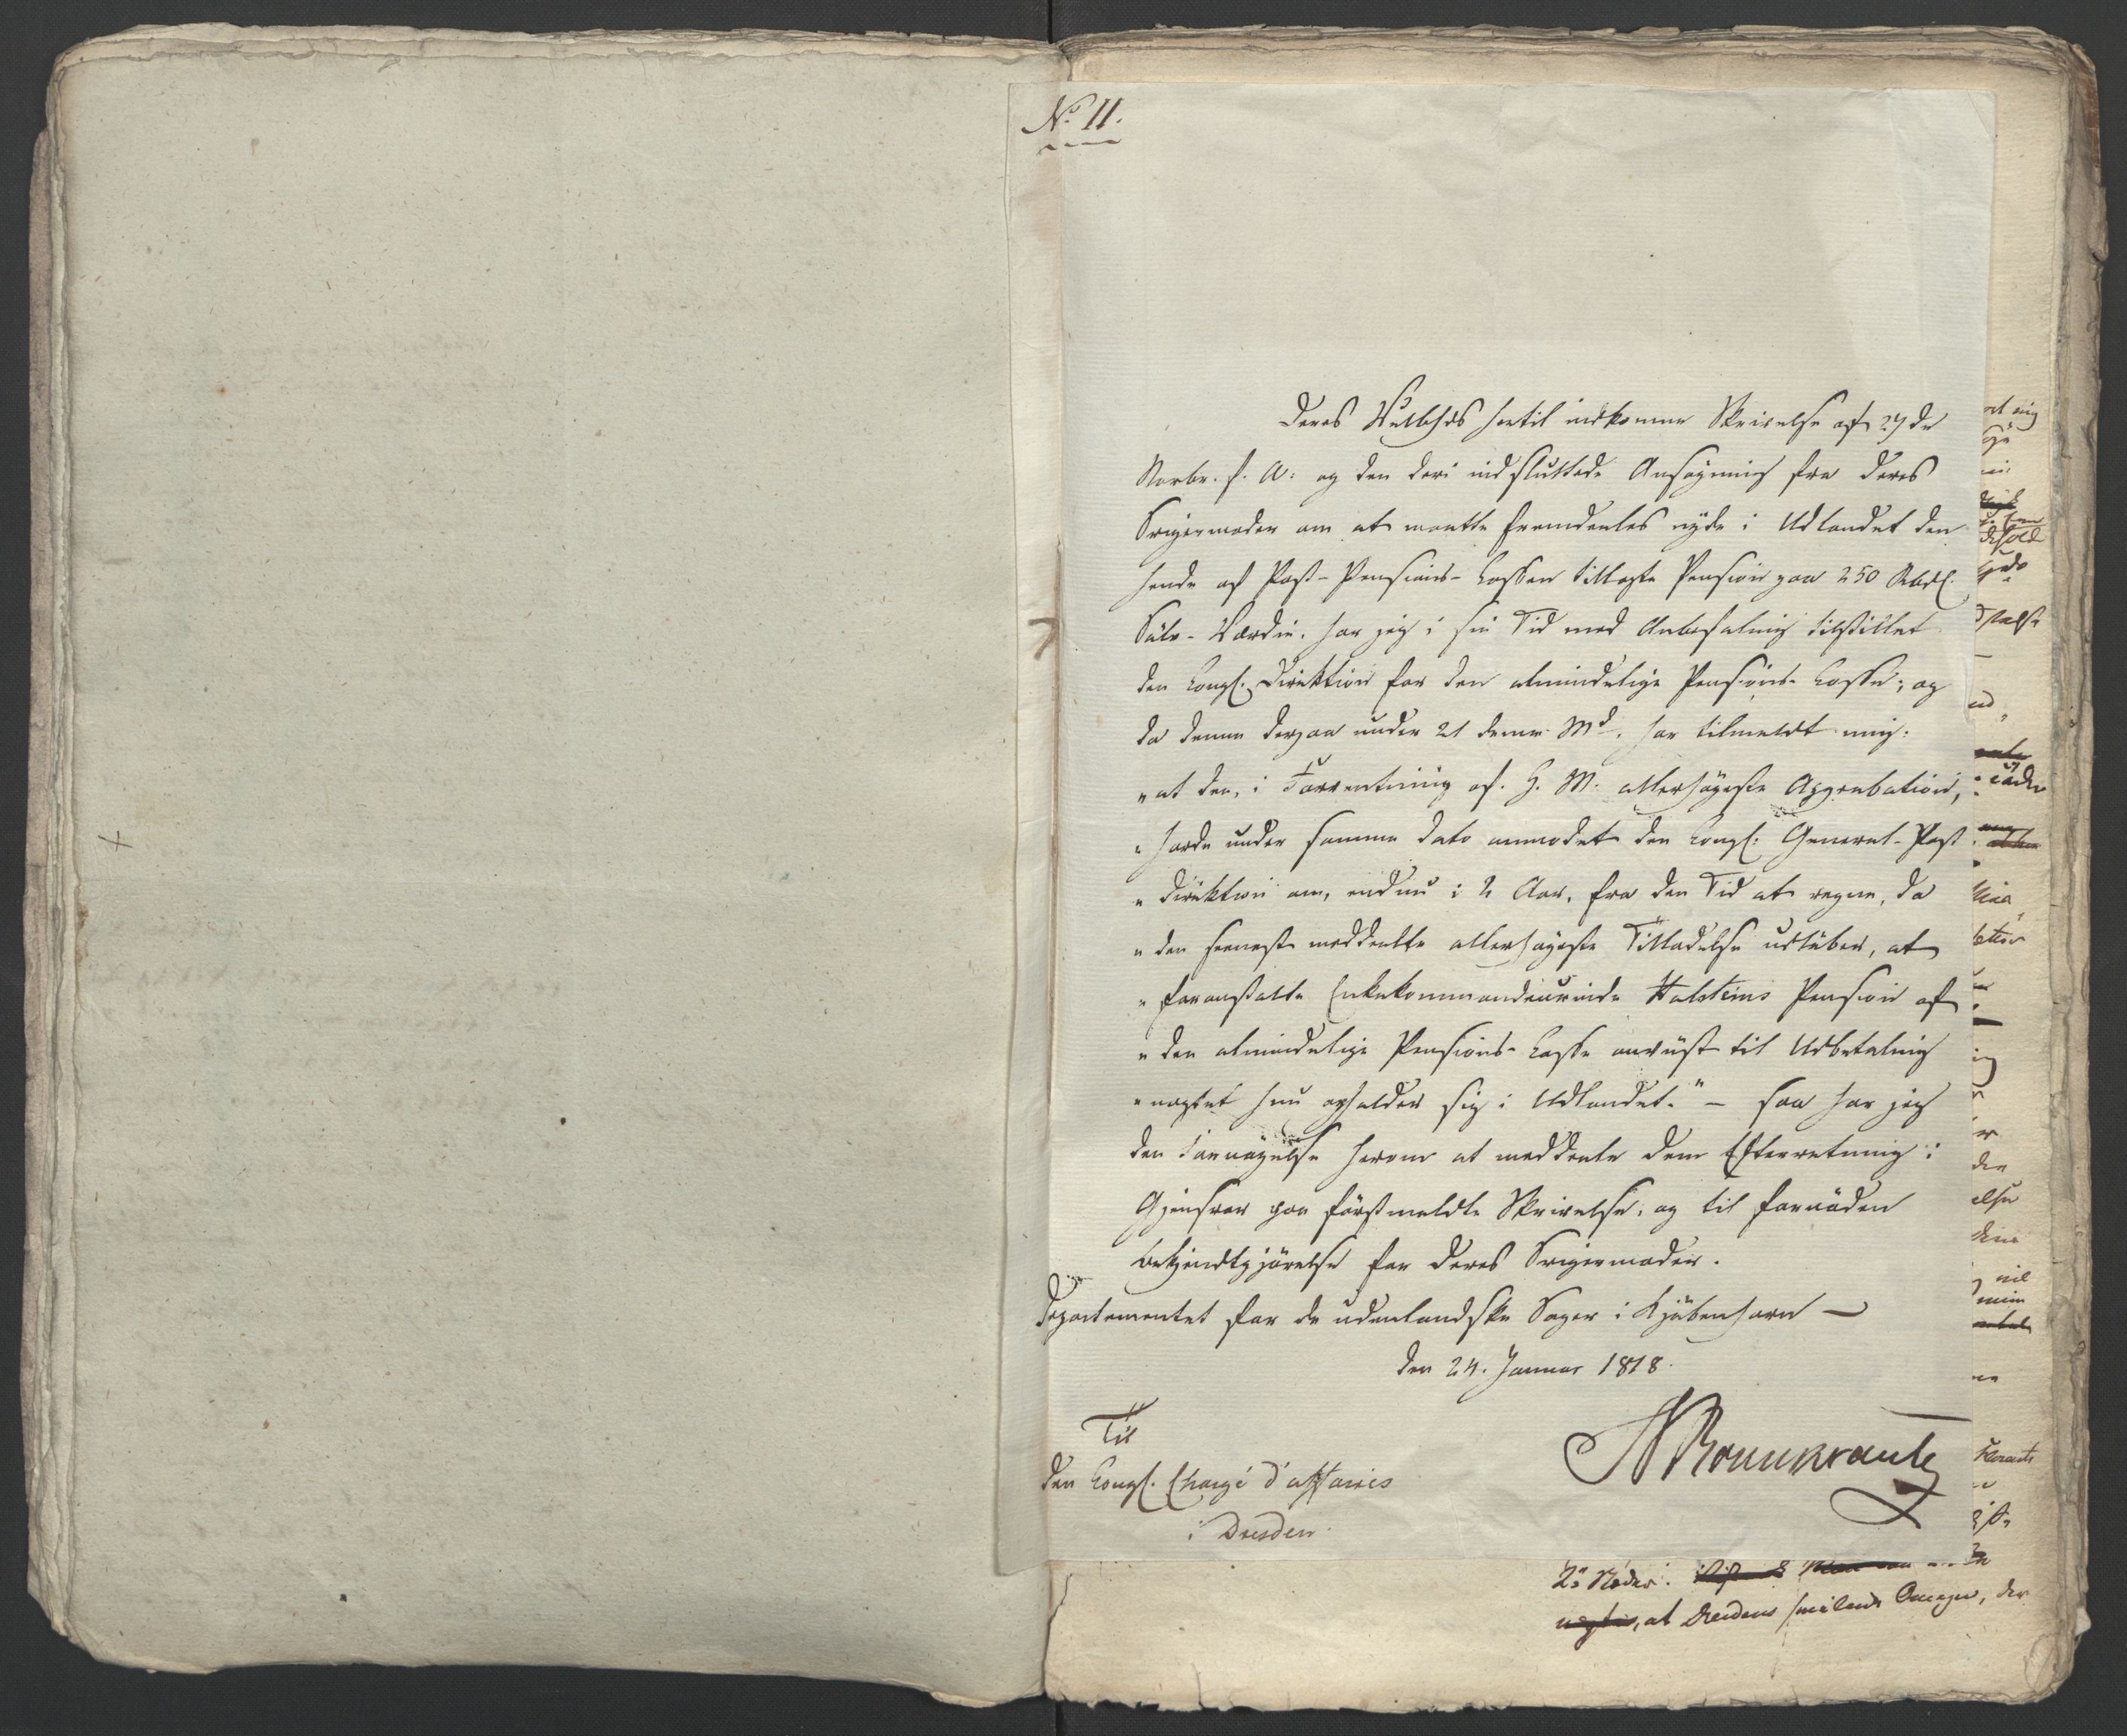 No. II.
Deres Velbhds hertil indkomne Skrivelse af 27de
Novbr. f. A: og den deri indsluttede Ansøgning fra Deres
Svigermoder om at maatte fremdeeles nyde i Udlandet den
hende af Post-Pensions-Cassen tillagte Pension paa 250 Rbdl.
Sölv-Værdie, har jeg i sin Tid med Anbefaling tilstillet
den Kongl. Direktion for den almindelige Pensions-Casse; og
da denne derpaa under 21 denne Md. har tilmeldt mig:
"at den, i Forventning af H. M. allerhöyeste Approbation,
"havde under samme Dato anmodet den Kongl: General-Post
"Direktion om, endnu i 2 Aar, fra den Tid at regne, da
"den seeneste meddeelte allerhøyeste Tilladelse udlöber, at
"foranstalte Enkekommandeurinde Holsteins Pension af
"den almindelige Pensions-Casse anviist til Udbetaling
"uagtet hun opholder sig i Udlandet." – saa har jeg
den Fornøyelse herom at meddeele Dem Efterretning i
Gjensvar paa förstmeldte Skrivelse, og til fornöden
Bekjendtgjörelse for Deres Svigermoder.
Departementet for de udenlandske Sager i Kjöbenhavn –
den 24. Januar 1818.
NRosenkrantz
Til
den Kongl. Chargé d'affaires
i Dresden.
at Dresdens smilende Omegn, der